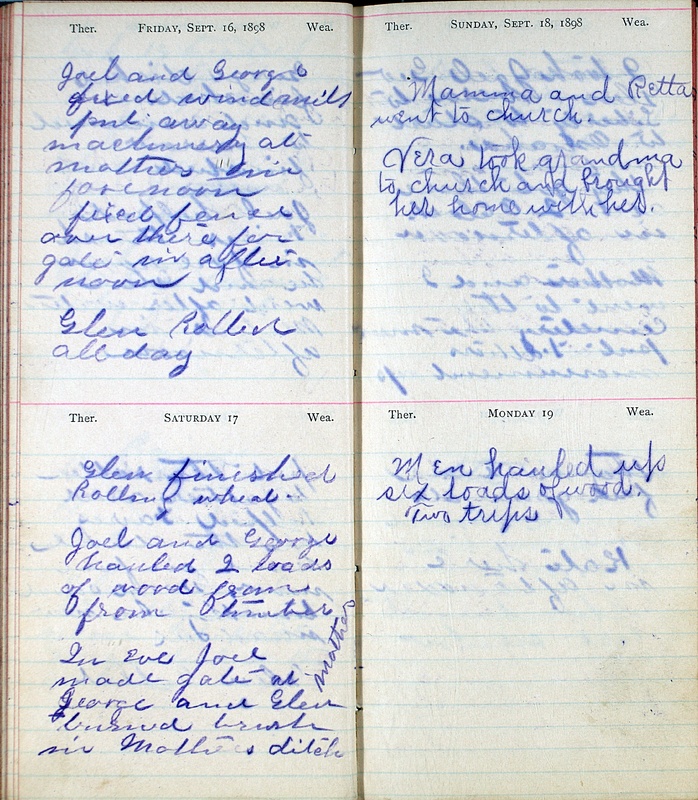 Ther. FRIDAY, SEPT. 16, 1898 Wea.
Joel and George
fixed windmill
put away
machinery at
mother in
forenoon
fixed fence
over there for
gate in after
noon
Glen Rolled
all day
Ther. SATURDAY 17 Wea.
Glen finished
Rolling wheat.
Joel and George
hauled 2 loads
of wood from
from timber
In eve Joel
made gate at mothers
George and Glen
burned brush
in Mothers ditch
Ther. SUNDAY, SEPT. 18, 1898 Wea.
Mamma and Retta
went to church.
Vera took grandma
to church and brought
her home with her.
Ther. MONDAY 19 Wea.
Men hauled up
six loads of wood.
Two trips